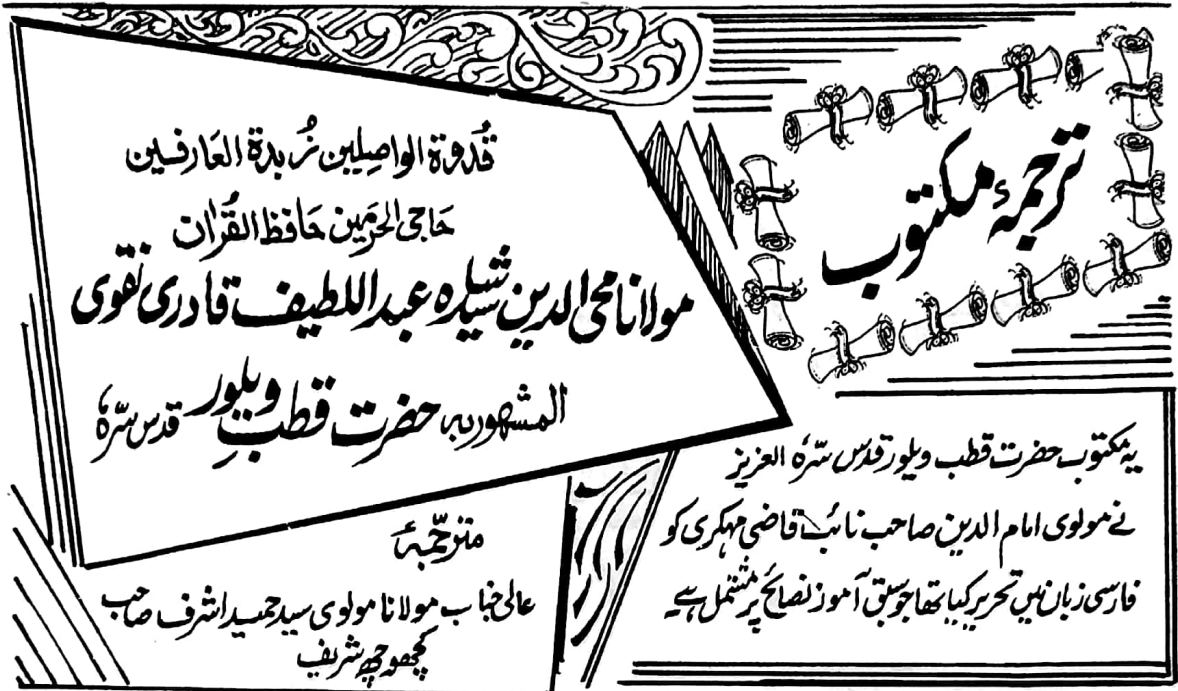 ترجمۂ مکتوب
قُدوۃ الواصِلین زُبدۃ العَارفین
حَاجی الحرمَین حَافظ القُرآن
مولانا محی الدین سید شاہ عبداللطیف قادری نقوی
المشہور بہ حضرت قطب ویلور قدس سرّہٗ
یہ مکتوب حضرت قطب ویلور قدس سرّہٗ العزیز
نے مولوی امام الدین صاحب نائب قاضی مہکری کو
فارسی زبان میں تحریر کیا تھا جو سبق آموز نصائح پر مشتمل ہے
مترجّمہٗ
عالی جناب مولانا مولوی سید حمید اشرف صاحب
کچھوچھہ شریف